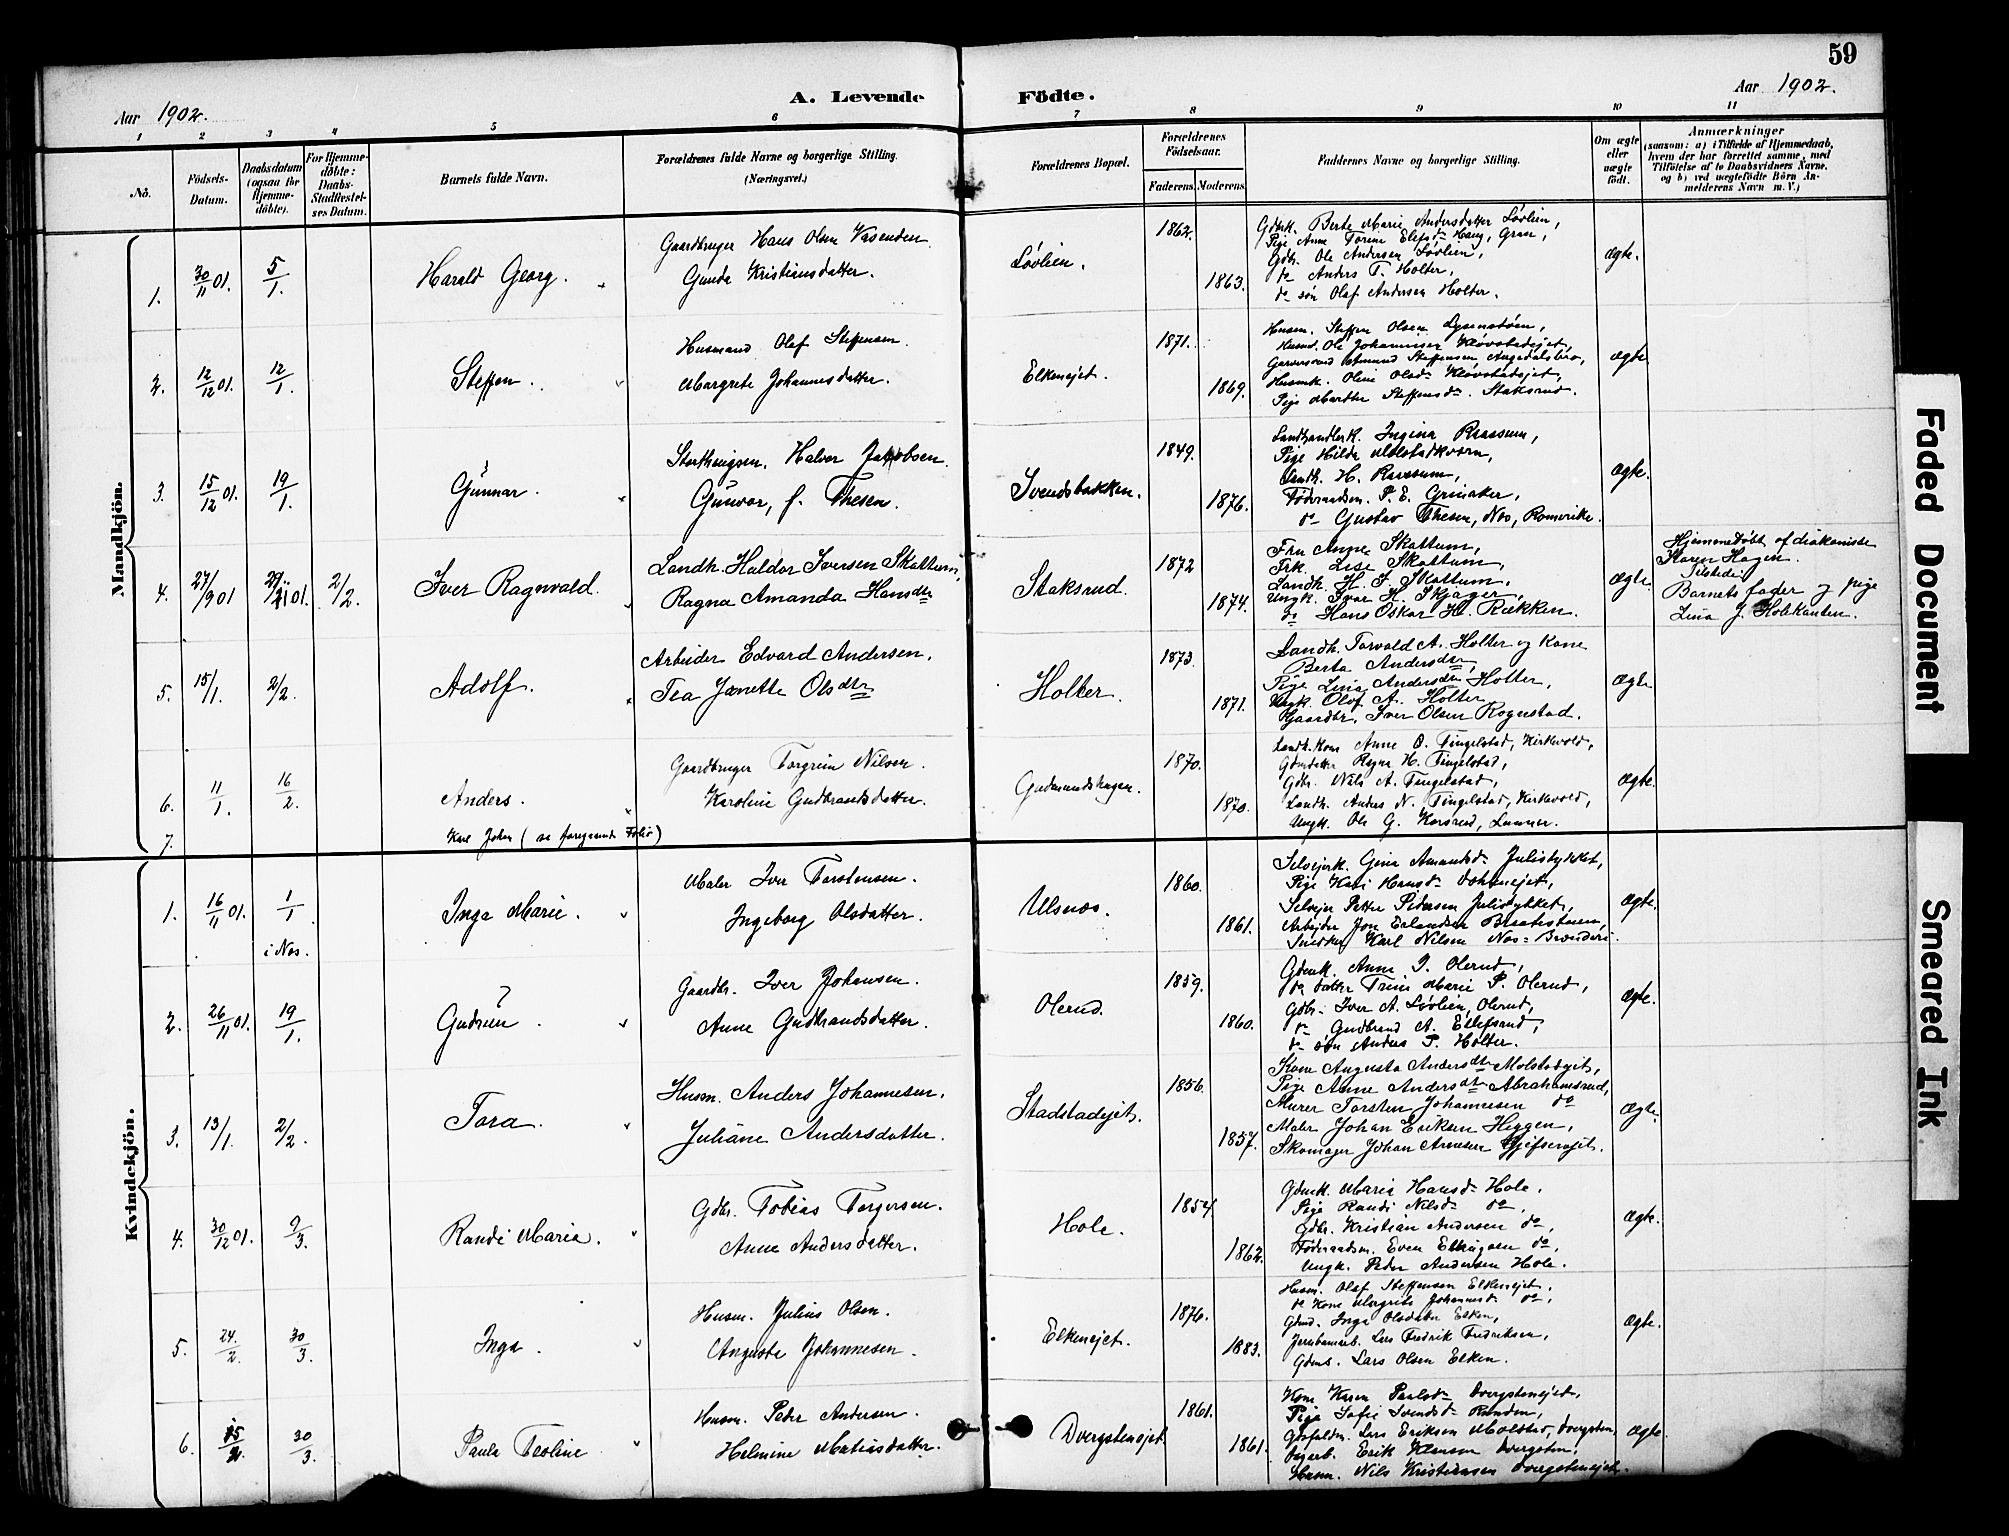 59
Aar 1902.
A. Levende Födte.
Aar 1902.
1 2 3 4 5 6 7 8 9 10 11
No.
Födsels-Datum.
Daabsdatum (ogsaa for Hjemme-döbte).
For Hjemme-döbte: Daabs-Stadfæstel-ses Datum.
Barnets fulde Navn.
Forældrenes fulde Navne og borgerlige Stilling. (Næringsvei.)
Forældrenes Bopæl.
Forældrenes Födselsaar.
Faderens. Moderens.
Faddernes Navne og borgerlige Stilling.
Om ægte eller uægte födt.
Anmærkninger
(saasom: a) i Tilfælde af Hjemmedaab,
hvem der har forrettet samme, med
Tilföielse af to Daabsvidners Navne,
og b) ved uægtefödte Börn An-
melderens Navn m. V.)
Mandkjön.
1. 30/11 01. 5/1. Harald Georg.
Gaardbruger Hans Olsen Vasenden.
Gunda Kristiansdatter.
Løvlien. 1862. 1863.
Gdbrk. Berte Marie Andersdatter Løvlien,
Pige Anne Torine Elefsd. Haug, Gran,
Gdbr. Ole Andersen Løvlien,
do Anders T. Holter,
do søn Olaf Andersen Holter.
ægte.
2. 12/12 01. 12/1. Steffen.
Husmand Olaf Steffensen.
Margrete Johannesdatter.
Elkeneiet. 1871. 1869.
Husm. Steffen Olsen
Husmd. Ole Johannesen Kløvstadejet,
Amund Steffensen
Husmk. Oline Olsd. Kløvstadejet,
Pige Marthe Steffensd. Staksrud.
ægte.
3. 15/12 01. 19/1. Gunnar.
Storthingsm. Halvor Jakobsen.
Gunvor, f. Thesen.
Svendsbakken. 1849. 1876.
Landhandlerk. Ingina Raassum,
Pige Hilda Molstadkværn,
Landh. H. Raassum,
Føderaadsm. P. E. Grinaker,
do Gustav Thesen, Nes, Romerike.
ægte.
4. 27/9 01 01. 2/2. Iver Ragnvald.
Landh. Haldor Iversen Skattum,
Ragna Amanda Hansdtr
Staksrud. 1872 1874.
Fru Anne Skattum,
Frk. Lise Skattum,
Landh. H. I. Skattum,
Ungk. Ivar H. Skjager,
do Hans Oskar H. Rækken.
ægte.
Hjemmedøbt af diakonisse
Karen Hagen.
Tilstede:
Barnets fader og pige
Lina J. Holekanten.
5. 15/1. 2/2. Adolf.
Arbeider Edvard Andersen.
Tea Jonette Olsdtr
Holter. 1873. 1871.
Landh. Torvald A. Holter og Kone
Berta Andersdtr,
Pige Lina Andersdtr Holter,
Ungk. Olof A. Holter
Gaardbr. Iver Olsen Rognstad.
ægte
6. 11/1. 16/2. Anders.
Gaardbruger Torgrim Nilsen.
Karoline Gudbrandsdatter.
Gudmundshagen. 1870. 1870.
Landh. Kone Anne O. Tingelstad, Kirkevold,
Gdmdatter Ragna H. Tingelstad,
Gdbr. Nils A. Tingelstad,
Landh. Anders N. Tingelstad, Kirkevold,
Ungk. Ole G. Korsrud, Lunner.
ægte.
7. Karl Johan (se foregaaende Folio)
Kvindekjön.
1. 16/11 01. 1/1. i Nes. Inga Marie.
Maler Iver Torstensen.
Ingeborg Olsdatter.
Ulsnes. 1860. 1861.
Selvejerk. Gina Amundsd. Julistykket,
Pige Kari Hansd.
Selvejer Petter Pedersen Julistykket,
Arbejder Jon Erlandsen
Snedker Karl Nilsen
ægte.
2. 26/11 01. 19/1. Gudrun.
Gaardbr. Iver Johansen.
Anne Gudbrandsdatter.
Olerud. 1859. 1860.
Gdmk. Anne I. Olerud,
do datter Trine Marie P. Olerud,
Gdbr. Iver A. Løvlien, Olerud,
do Gudbrand A. Ellefsrud,
do søn Anders P. Holter.
ægte.
3. 13/1. 2/2. Tora.
Husm. Anders Johannesen.
Juliane Andersdatter.
Stadstadejet. 1856. 1857.
Kone Augusta Andersdtr Molstadejet,
Pige Anne Andersdtr Abrahamsrud,
Murer Torsten Johannesen do
Maler Johan Eriksen Heggen,
Skomager Johan Arnesen
ægte.
4. 30/12 01. 9/3. Randi Maria.
Gdbr. Tobias Torgersen.
Anne Andersdatter.
Hole. 1854. 1862.
Gdmk. Maria Hansd. Hole,
Pige Randi Nilsd. do,
Gdbr. Kristian Andersen do,
Føderaadsm. Even do,
Ungk. Peder Andersen Hole.
ægte.
5. 24/2. 30/3. Inga.
Husm. Julius Olsen.
Augusta Johannesen.
Elkeneiet. 1876. 1883.
Husm. Olaf Steffensen Elkenejet,
do Kone Margrete Johannesd. do,
Gdmd. Inga Olsdatter Elken,
Jernbanearb. Lars Fredrik Fredriksen,
Gdms. Lars Olsen Elken.
ægte.
6. 15/2. 30/3. Paula Teoline
Husm. Peder Andersen.
Helmine Matiasdatter.
Dvergstenejet 1861. 1861.
Kone Karen Paulsd. Dvergstenejet,
Pige Sofie Svendsd. Randen,
Lars Eriksen Molstad, Dvergsten,
Dagarb. Erik Klausen Dvergsten,
Husm. Nils Kristiansen Dvergstenejet.
ægte
Faded Document
Smeared Ink